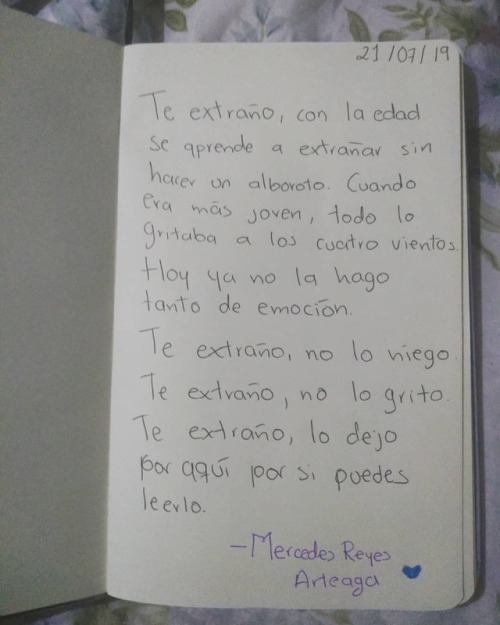 21/07/19
Te extraño, con la edad
se aprende a extrañar sin
hacer un alboroto. Cuando
era más joven, todo lo
gritaba a los cuatro vientos.
Hoy ya no la hago
tanto de emoción.
Te extraño, no lo niego.
Te extraño, no lo grito.
Te extraño, lo dejo
por aquí por si puedes
leerlo.
-Mercedes Reyes
Arteaga